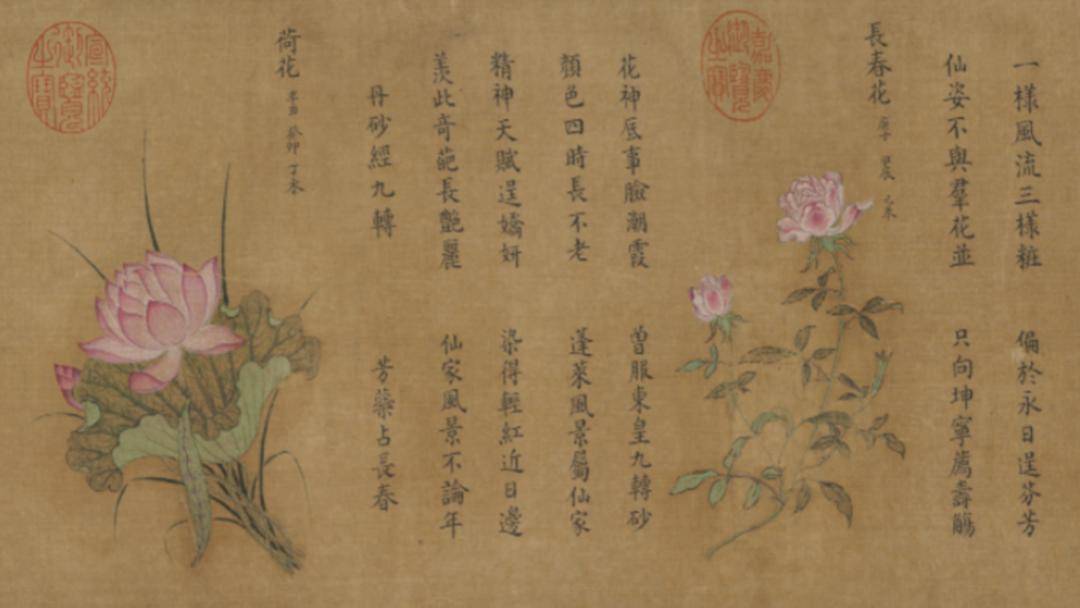 一樣風流三樣粧 偏於永日逞芬芳
仙姿不與羣花並 只向坤寧薦壽觴
長春花 庚子 甲辰 乙未
嘉慶御覽之寶
花神底事臉潮霞 曾服東皇九轉砂
顏色四時長不老 蓬萊風景屬仙家
精神天賦逞嬌妍 染得輕紅近日邊
羨此奇葩長艷麗 仙家風景不論年
丹砂經九轉 芳蘂占長春
荷花 辛丑 癸卯 丁未
宣統御覽之寶